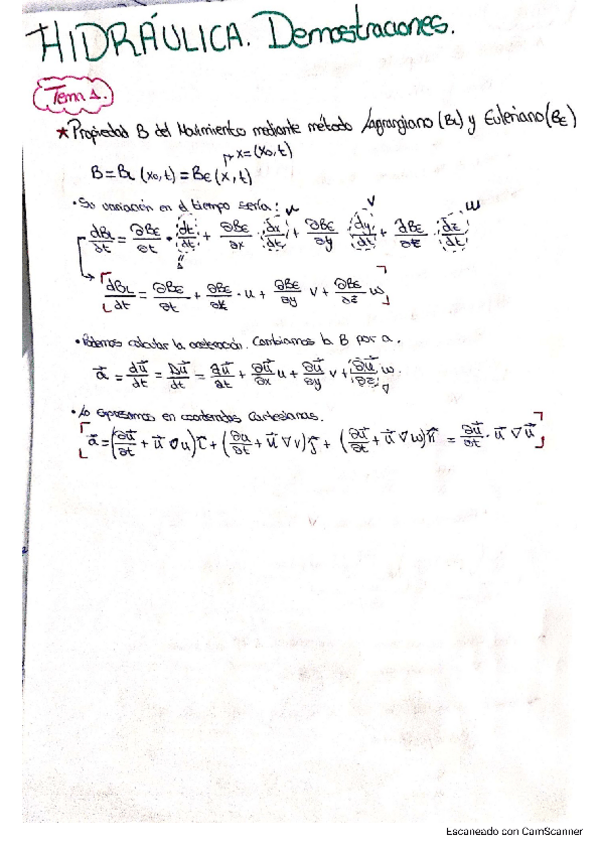 HIDRÁULICA. Demostraciones.
Tema 1.
★ Propiedad B del Movimiento mediante método Lagrangiano (BL) y Euleriano (BE)
x=(x0,t)
B = BL (x0,t) = BE (x,t)
• Su variación en el tiempo sería:
u v w
dBL/dt = ∂BE/∂t · dt/dt + ∂BE/∂x · dx/dt + ∂BE/∂y dy/dt + ∂BE/∂z dz/dt
dBL/dt = ∂BE/∂t + ∂BE/∂x · u + ∂BE/∂y v + ∂BE/∂z w
• Podemos calcular la aceleración. Cambiamos la B por a.
a⃗ = du⃗/dt = Du⃗/dt = ∂u⃗/∂t + ∂u⃗/∂x u + ∂u⃗/∂y v + ∂u⃗/∂z w
• Lo expresamos en coordenadas Cartesianas.
a⃗ = (∂u⃗/∂t + u⃗ ∇u) i⃗ + (∂u/∂t + u⃗ ∇v) j⃗ + (∂u⃗/∂t + u⃗ ∇w) k⃗ = ∂u⃗/∂t · u⃗ ∇ u⃗
Escaneado con CamScanner